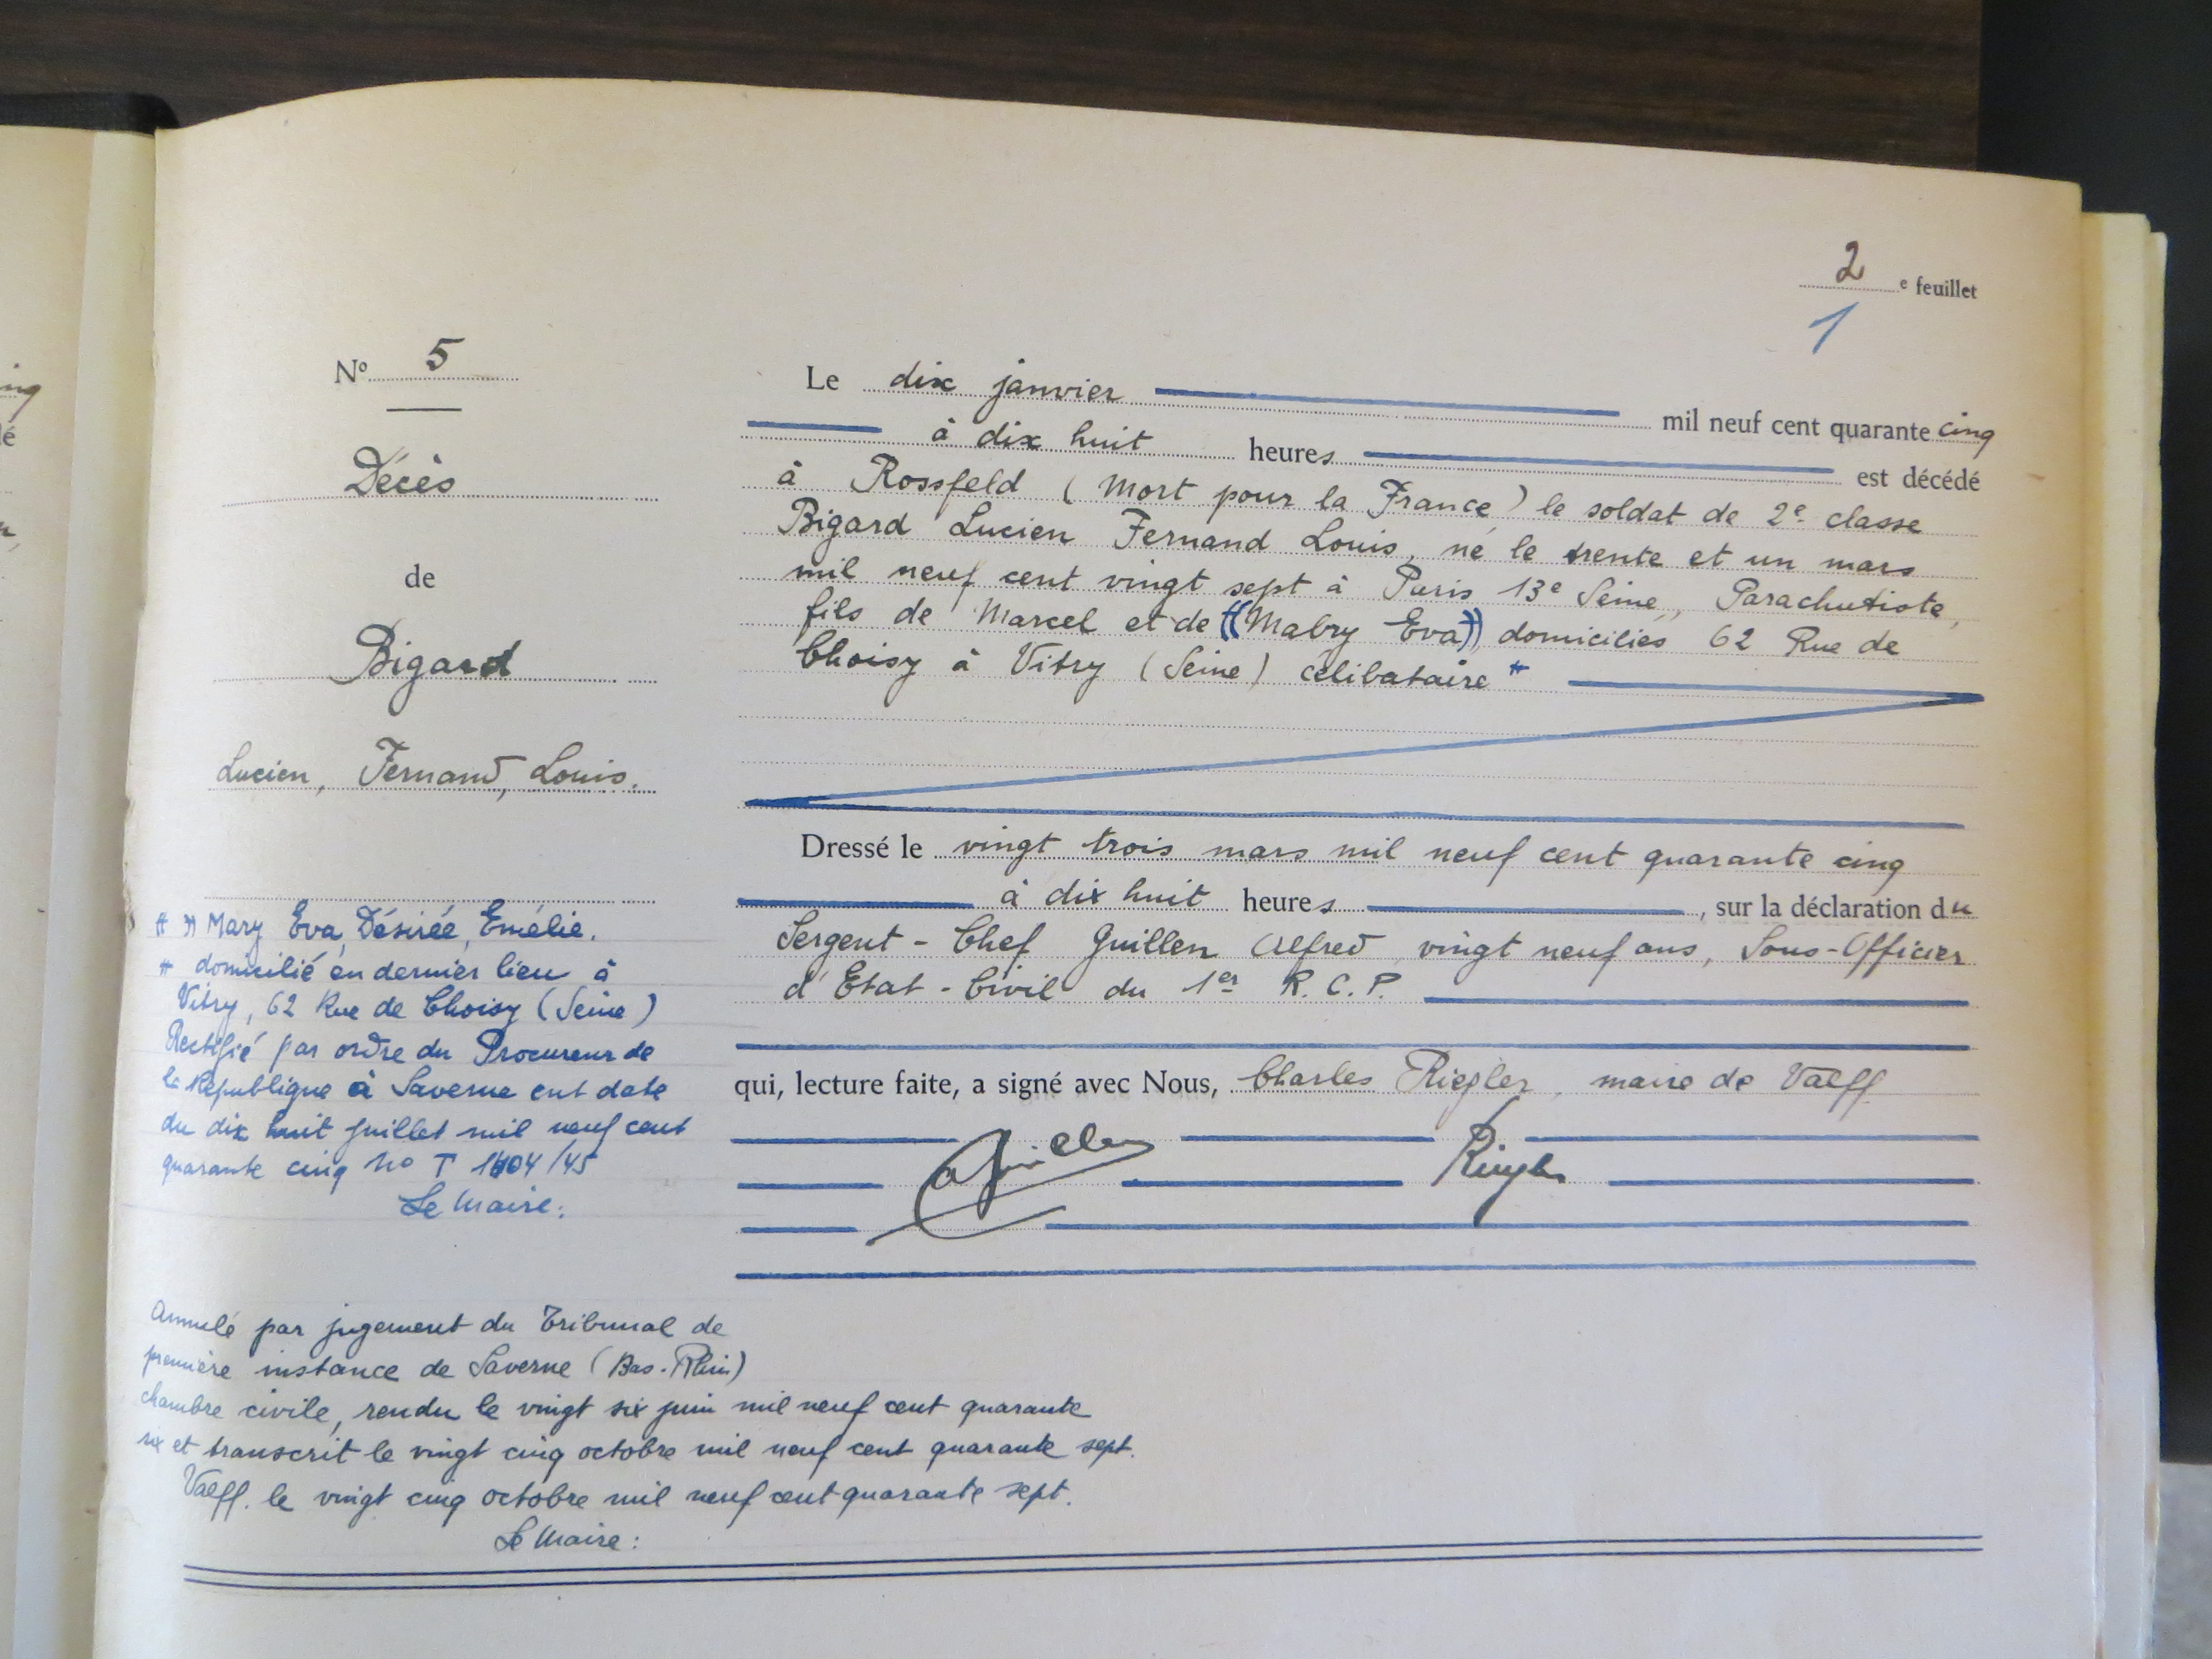 2 e feuillet
1
N° 5
Décès
de
Bigard
Lucien, Fernand, Louis.
Le dix janvier mil neuf cent quarante cinq
à dix huit heures est décédé
à Rossfeld (Mort pour la France) le soldat de 2e classe
Bigard Lucien Fernand Louis, né le trente et un mars
mil neuf cent vingt sept à Paris 13e Seine, Parachutiste,
fils de Marcel et de ((Mabry Eva)) domiciliés 62 Rue de
Choisy à Vitry (Seine) célibataire #
Dressé le vingt trois mars mil neuf cent quarante cinq
à dix huit heures, sur la déclaration du
Sergent-Chef Guillen Alfred, vingt neuf ans, Sous-Officier
d'Etat-Civil du 1er R.C.P.
qui, lecture faite, a signé avec Nous, Charles Riegler, maire de Valff
# )) Mary Eva, Désirée, Emélie.
# domicilié en dernier lieu à
Vitry, 62 Rue de Choisy (Seine)
Rectifié par ordre du Procureur de
la République à Saverne ent date
du dix huit juillet mil neuf cent
quarante cinq No T 1404/45
Le Maire:
Annulé par jugement du Tribunal de
première instance de Saverne (Bas-Rhin)
chambre civile, rendu le vingt six juin mil neuf cent quarante
six et transcrit le vingt cinq octobre mil neuf cent quarante sept.
Valff. le vingt cinq octobre mil neuf cent quarante sept.
Le Maire: